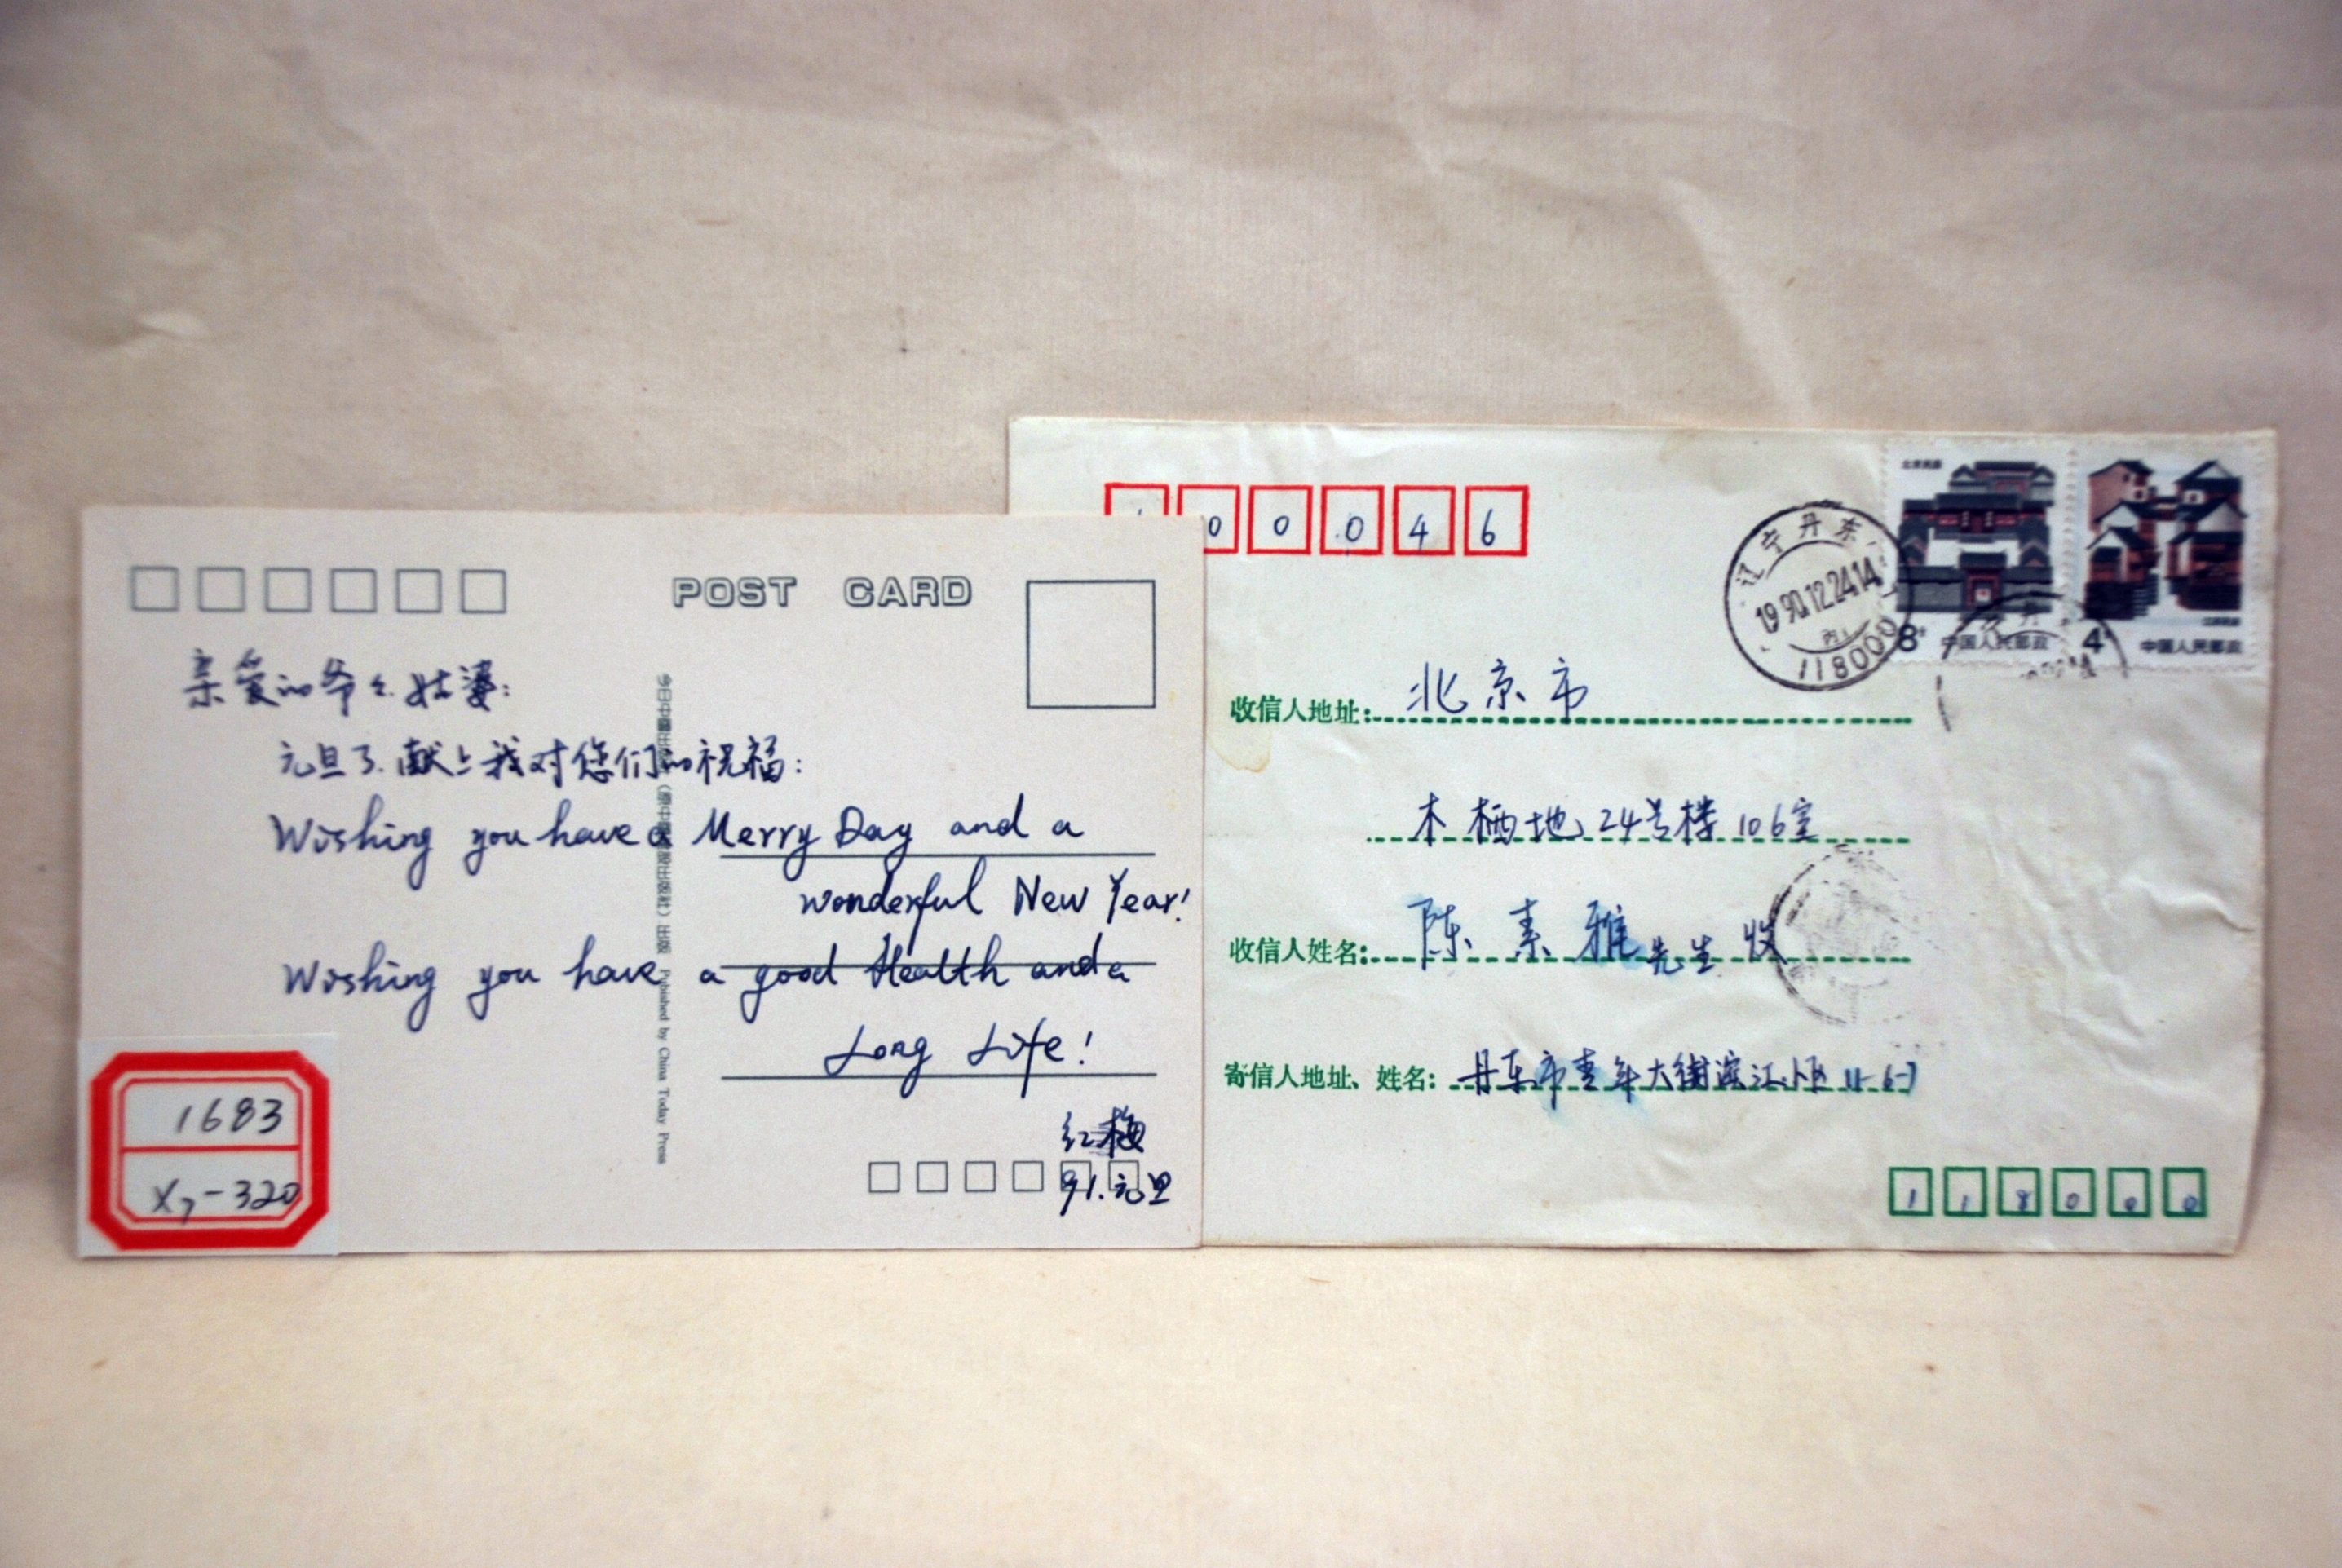 POST CARD
亲爱的爷々、姑婆：
元旦了，献上我对您们的祝福：
Wishing you have a Merry Day and a
wonderful New Year!
Wishing you have a good Health and a
Long Life!
红梅
91.元旦
Published by China Today Press
1683
X7-320
0 0 0 4 6
辽宁丹东
1990.12.24.14
118000
北京民居
8分 中国人民邮政
江苏民居
4分 中国人民邮政
收信人地址: 北京市
木樨地24号楼106室
收信人姓名: 陈素雅先生 收
寄信人地址、姓名: 丹东市青年大街滨江小区11-6-7
1 1 8 0 0 0